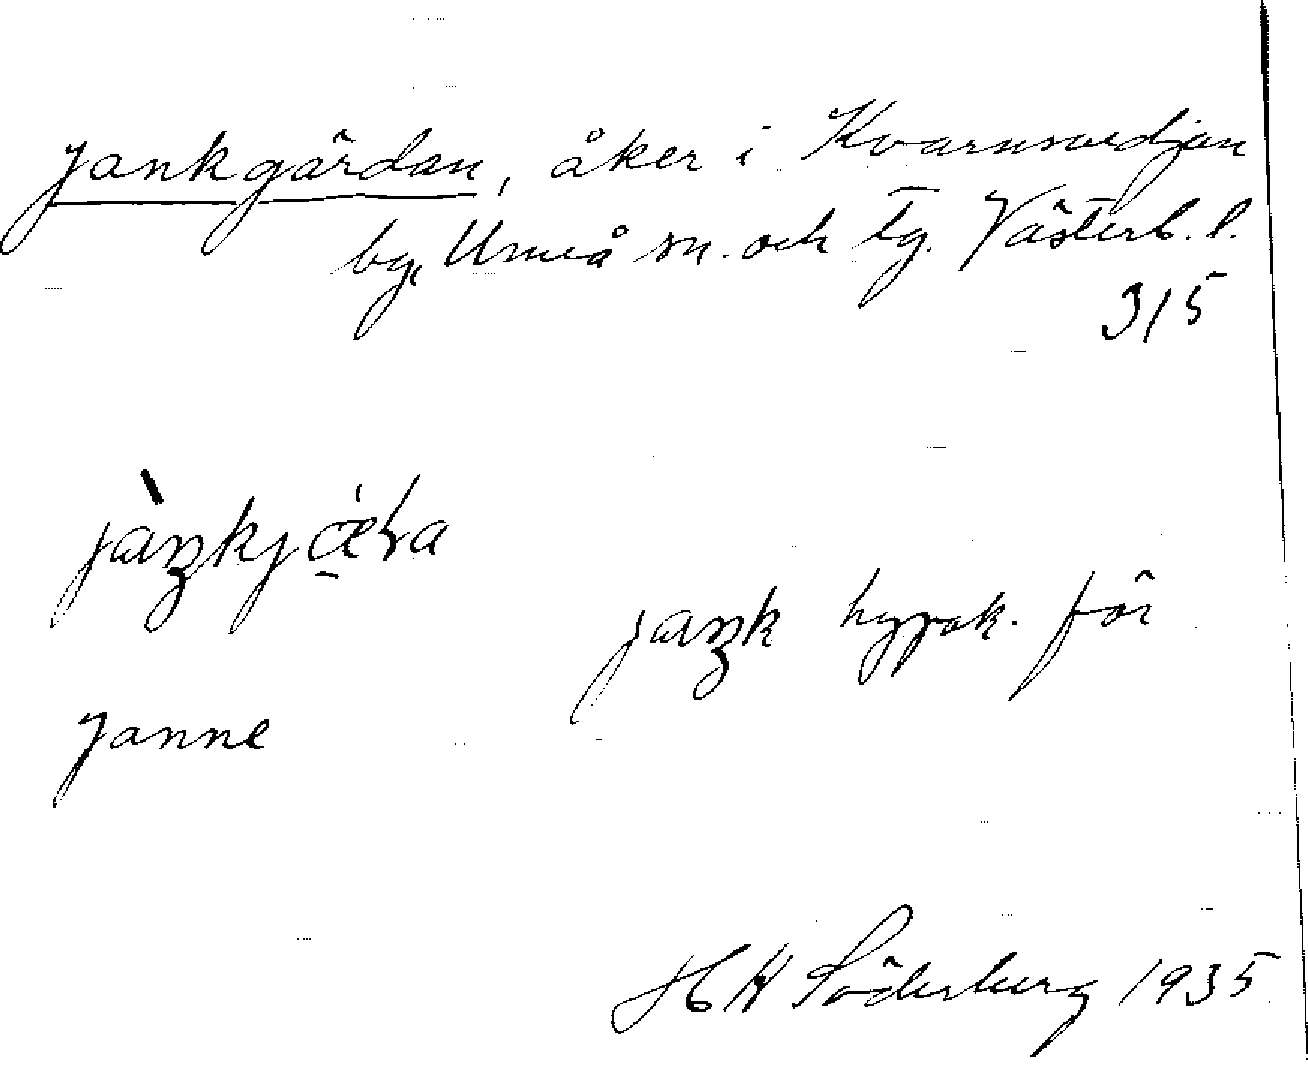 Jankgärdan, åker i Kvarnsvedjan
by, Umeå sn. och tg. Västerb. l.
315
jank hypok. för
Janne
H H Söderberg 1935